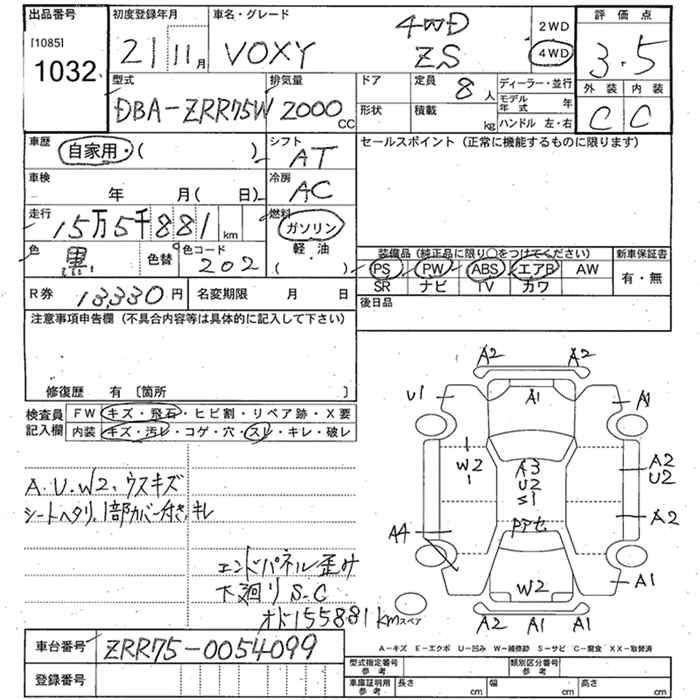 出品番号 初度登録年月 車名・グレード 評価点
[1085] 1032 21 11月 VOXY 4WD ZS 2WD 4WD 3.5
外装 内装
C C
型式 排気量 ドア 定員 ディーラー・並行
DBA-ZRR75W 2000 CC 8人 モデル年式 年
形状 積載 kg ハンドル 左・右
車歴 シフト セールスポイント (正常に機能するものに限ります)
自家用・( ) AT
車検 冷房
年 月(日) AC
走行 燃料
15万5千881 km ガソリン
色 色替 色コード 軽・油
黒 202 ( )
装備品(純正品に限り○をつけてください) 新車保証書
PS PW ABS エアB AW 有・無
SR ナビ TV カワ
R券 13,330円 名変期限 月 日 後日品
注意事項申告欄 (不具合内容等は具体的に記入して下さい)
修復歴 有 〔箇所 〕
検査員 FW キズ・飛石・ヒビ割・リペア跡・X要
記入欄 内装 キズ・汚レ・コゲ・穴・スレ・キレ・破レ
A2 A2
U1 A1 A1
W2 A3 A2
U2 U2
S1
A4 A2
W2 A1
A2 A1 A1
A.U.W2.ウスキズ
シートヘタリ,1部カバー付き,キレ
エンドパネル歪み
下廻りS-C
オド155881km スペア
A-キズ E-エクボ U-凹み W-補修跡 S-サビ C-腐食 XX-取替済
車台番号 ZRR75-0054099
型式指定番号 参考 類別区分番号 参考
登録番号 車庫証明用 参考 長さ cm 幅 cm 高さ cm